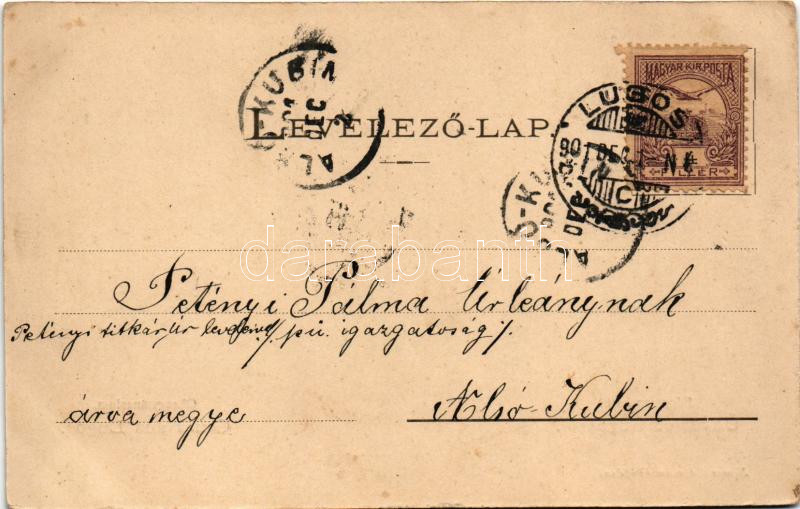 MAGYAR KIR. POSTA
FILLÉR
LUGOS
DEC.
C
ALSÓ-KUBIN
DEC
2
LEVELEZŐ-LAP
darabanth
Petényi Pálma Úrleánynak
Petényi titkár úr /pü. igazgatóság/.
árva megye
Alsó-Kubin